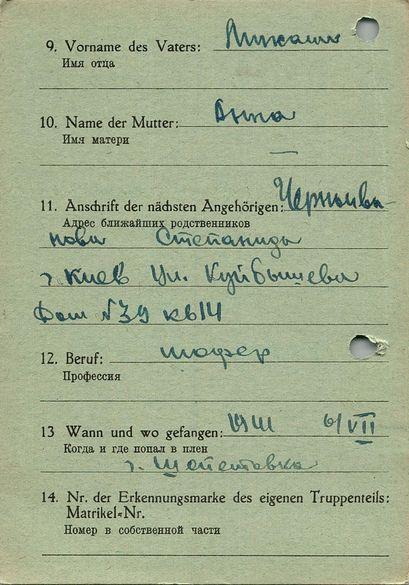 9. Vorname des Vaters:
Имя отца
10. Name der Mutter: Анна
Имя матери
11. Anschrift der nächsten Angehörigen:
Адрес ближайших родственников
Степанида
г Киев Ул. Куйбышева
Дом №39 кв 14
12. Beruf: шофер
Профессия
13 Wann und wo gefangen: 1941 6/VII
Когда и где попал в плен
г. Шепетовка
14. Nr. der Erkennungsmarke des eigenen Truppenteils:
Matrikel=Nr.
Номер в собственной части